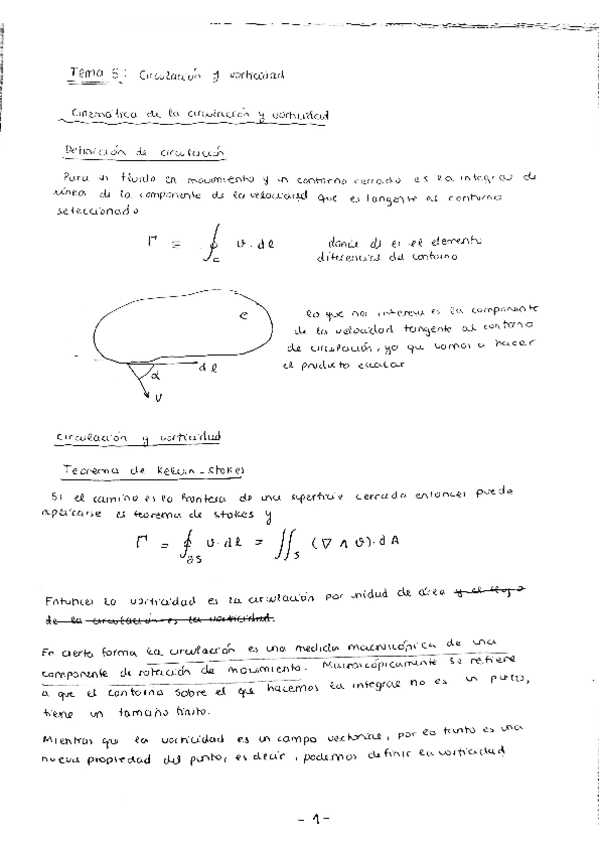 Tema 5: Circulación y vorticidad
Cinemática de la circulación y vorticidad
Definición de circulación
Para un fluido en movimiento y un contorno cerrado es la integral de
línea de la componente de la velocidad que es tangente al contorno
seleccionado
Γ = ∮c v·dl donde dl es el elemento
diferencial del contorno
c
lo que nos interesa es la componente
de la velocidad tangente al contorno
de circulación, ya que vamos a hacer
el producto escalar
dl
α
v
Circulación y vorticidad
Teorema de Kelvin-Stokes
Si el camino es la frontera de una superficie cerrada entonces puede
aplicarse el teorema de stokes y
Γ = ∮∂S v·dl = ∬S (∇ ∧ v)·dA
Entonces la vorticidad es la circulación por unidad de área y el flujo
de la circulación es la vorticidad.
En cierta forma la circulación es una medida macroscópica de una
componente de rotación de movimiento. Macroscópicamente se refiere
a que el contorno sobre el que hacemos la integral no es un punto,
tiene un tamaño finito.
Mientras que la vorticidad es un campo vectorial, por lo tanto es una
nueva propiedad del punto, es decir, podemos definir la vorticidad
- 1 -